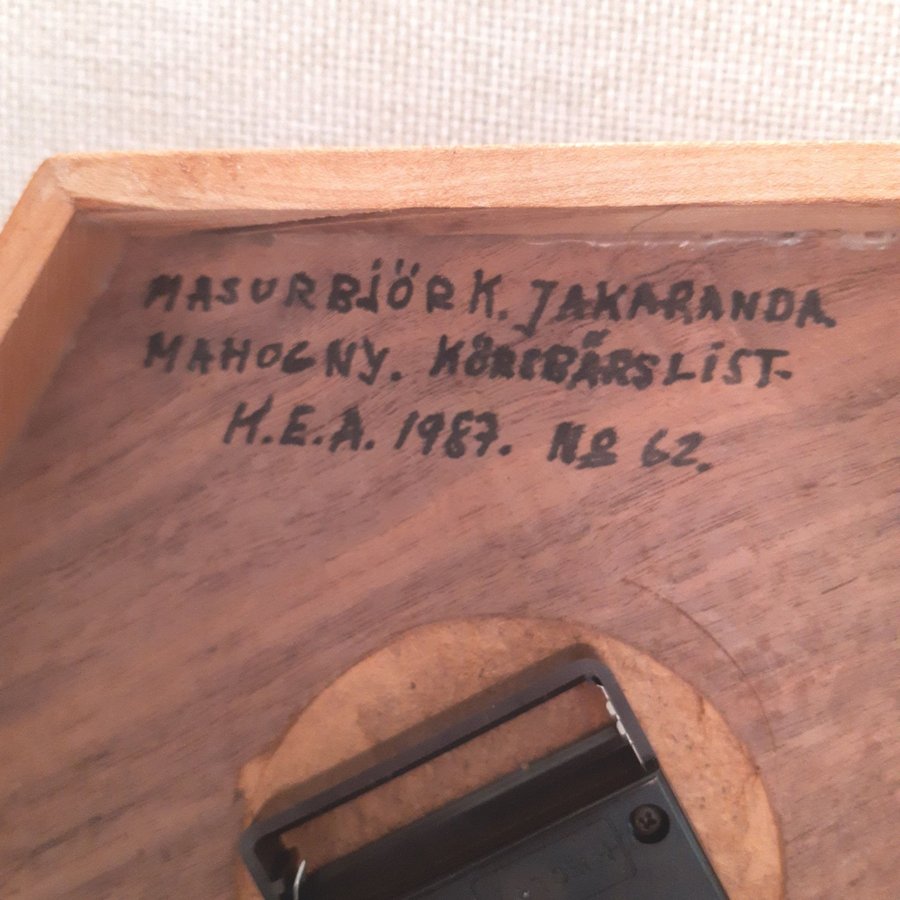 MASURBJÖRK. JAKARANDA.
MAHOGNY. KÖRSBÄRSLIST.
H.E.A. 1987. No 62.